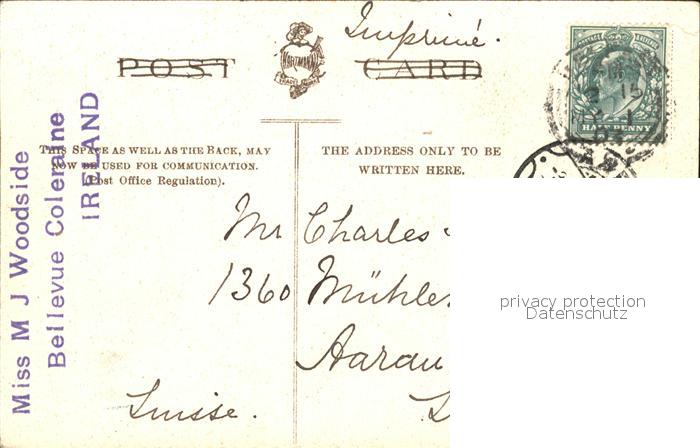 Imprimé.
POST CARD
HARTMANN
TRADE MARK
HALF PENNY
THIS SPACE AS WELL AS THE BACK, MAY
NOW BE USED FOR COMMUNICATION.
(Post Office Regulation).
THE ADDRESS ONLY TO BE
WRITTEN HERE.
Miss M J Woodside
Bellevue Coleraine
IRELAND
Mr Charles
1360 Mühle
Aarau
Suisse.
privacy protection
Datenschutz